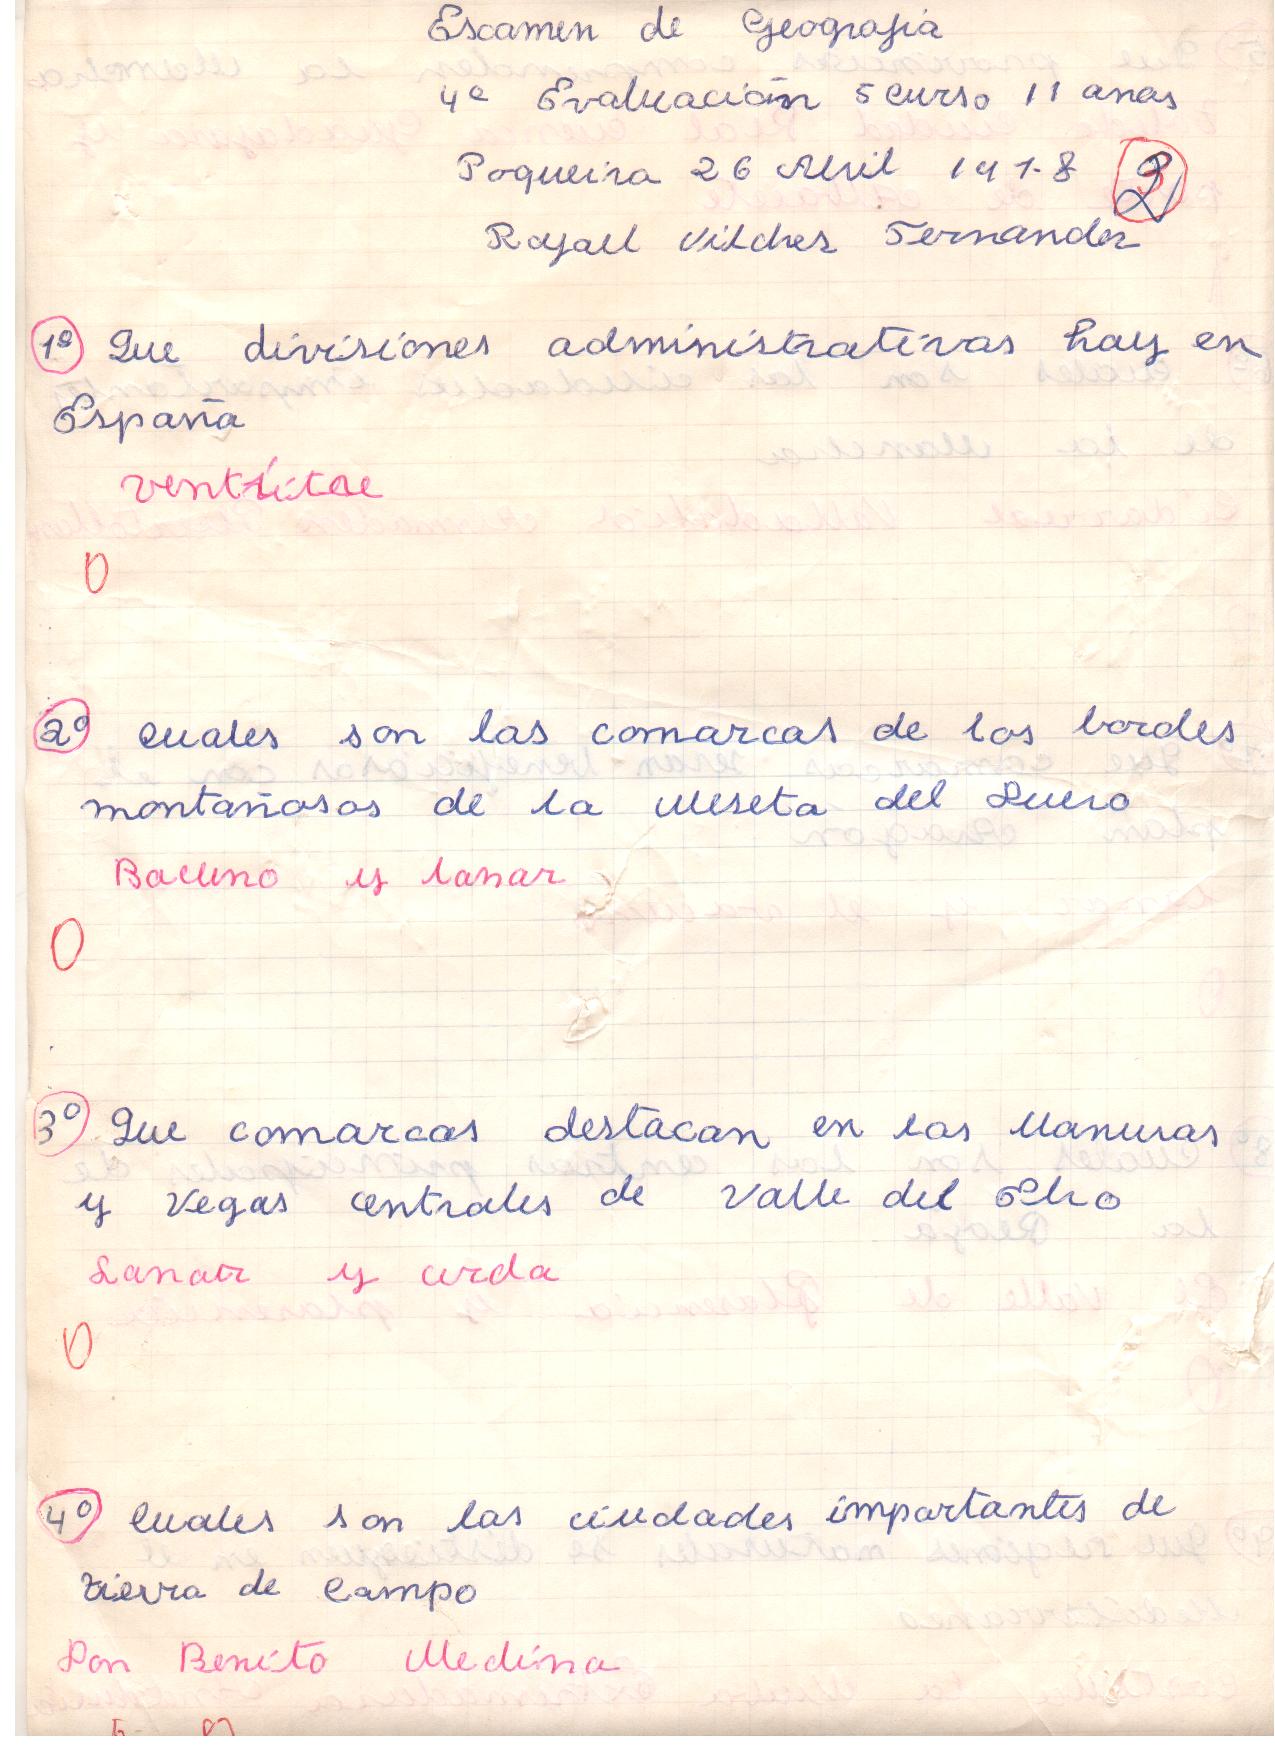 Escamen de Geografia
4ª Evaluación 5 curso 11 anas
Poqueira 26 Abril 197.8 3
Rafael Vilchez Fernandez
1º Que divisiones administrativas hay en
España
0
2º Cuales son las comarcas de los bordes
montañosos de la Meseta del Duero
Bacuno y lanar
0
3º Que comarcas destacan en las llanuras
y Vegas centrales de Valle del Ebro
Lanar y cerda
0
4º Cuales son las ciudades importantes de
tierra de Campo
Don Benito Medina